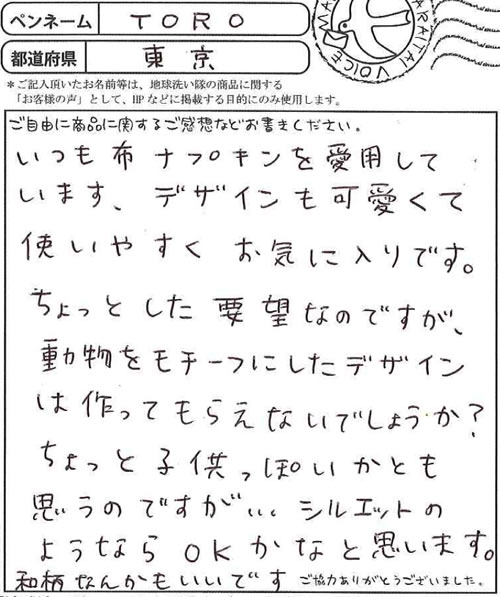 ペンネーム TORO
都道府県 東京
＊ご記入頂いたお名前等は、地球洗い隊の商品に関する
「お客様の声」として、HPなどに掲載する目的にのみ使用します。
ご自由に商品に関するご感想などお書きください。
いつも布ナプキンを愛用して
います、デザインも可愛くて
使いやすくお気に入りです。
ちょっとした要望なのですが、
動物をモチーフにしたデザイン
は作ってもらえないでしょうか?
ちょっと子供っぽいかとも
思うのですが... シルエットの
ようなならOKかなと思います。
和柄なんかもいいです ご協力ありがとうございました。
ARATAI VOICE